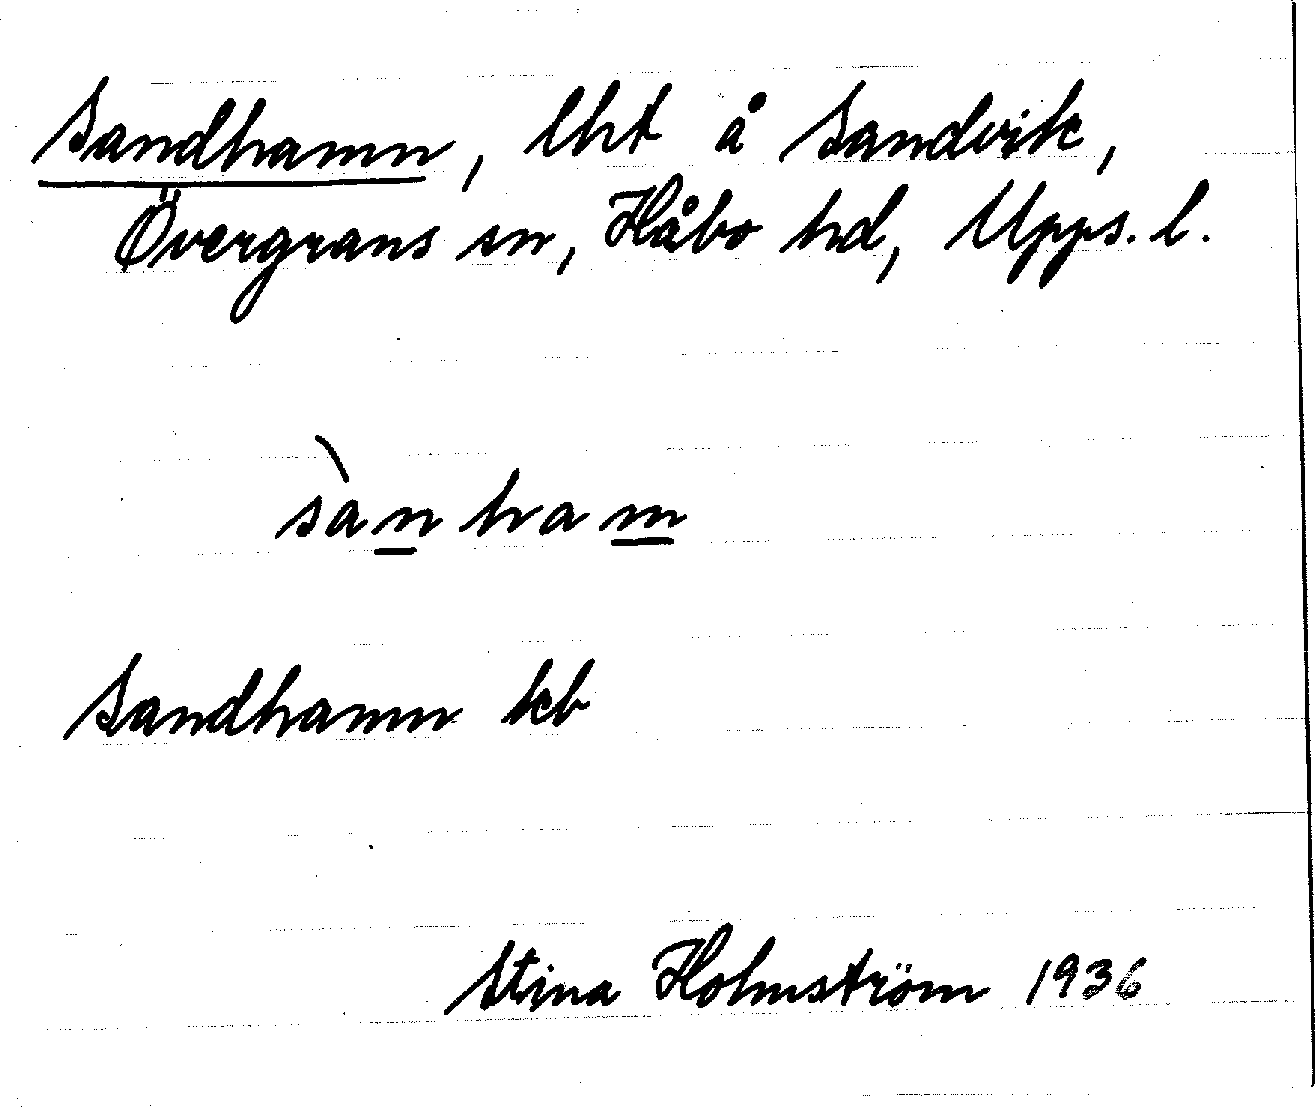 Sandhamn, lht å Sandvik,
Övergrans sn, Håbo hd, Upps. l.
sànham
Sandhamn kb
Stina Holmström 1936